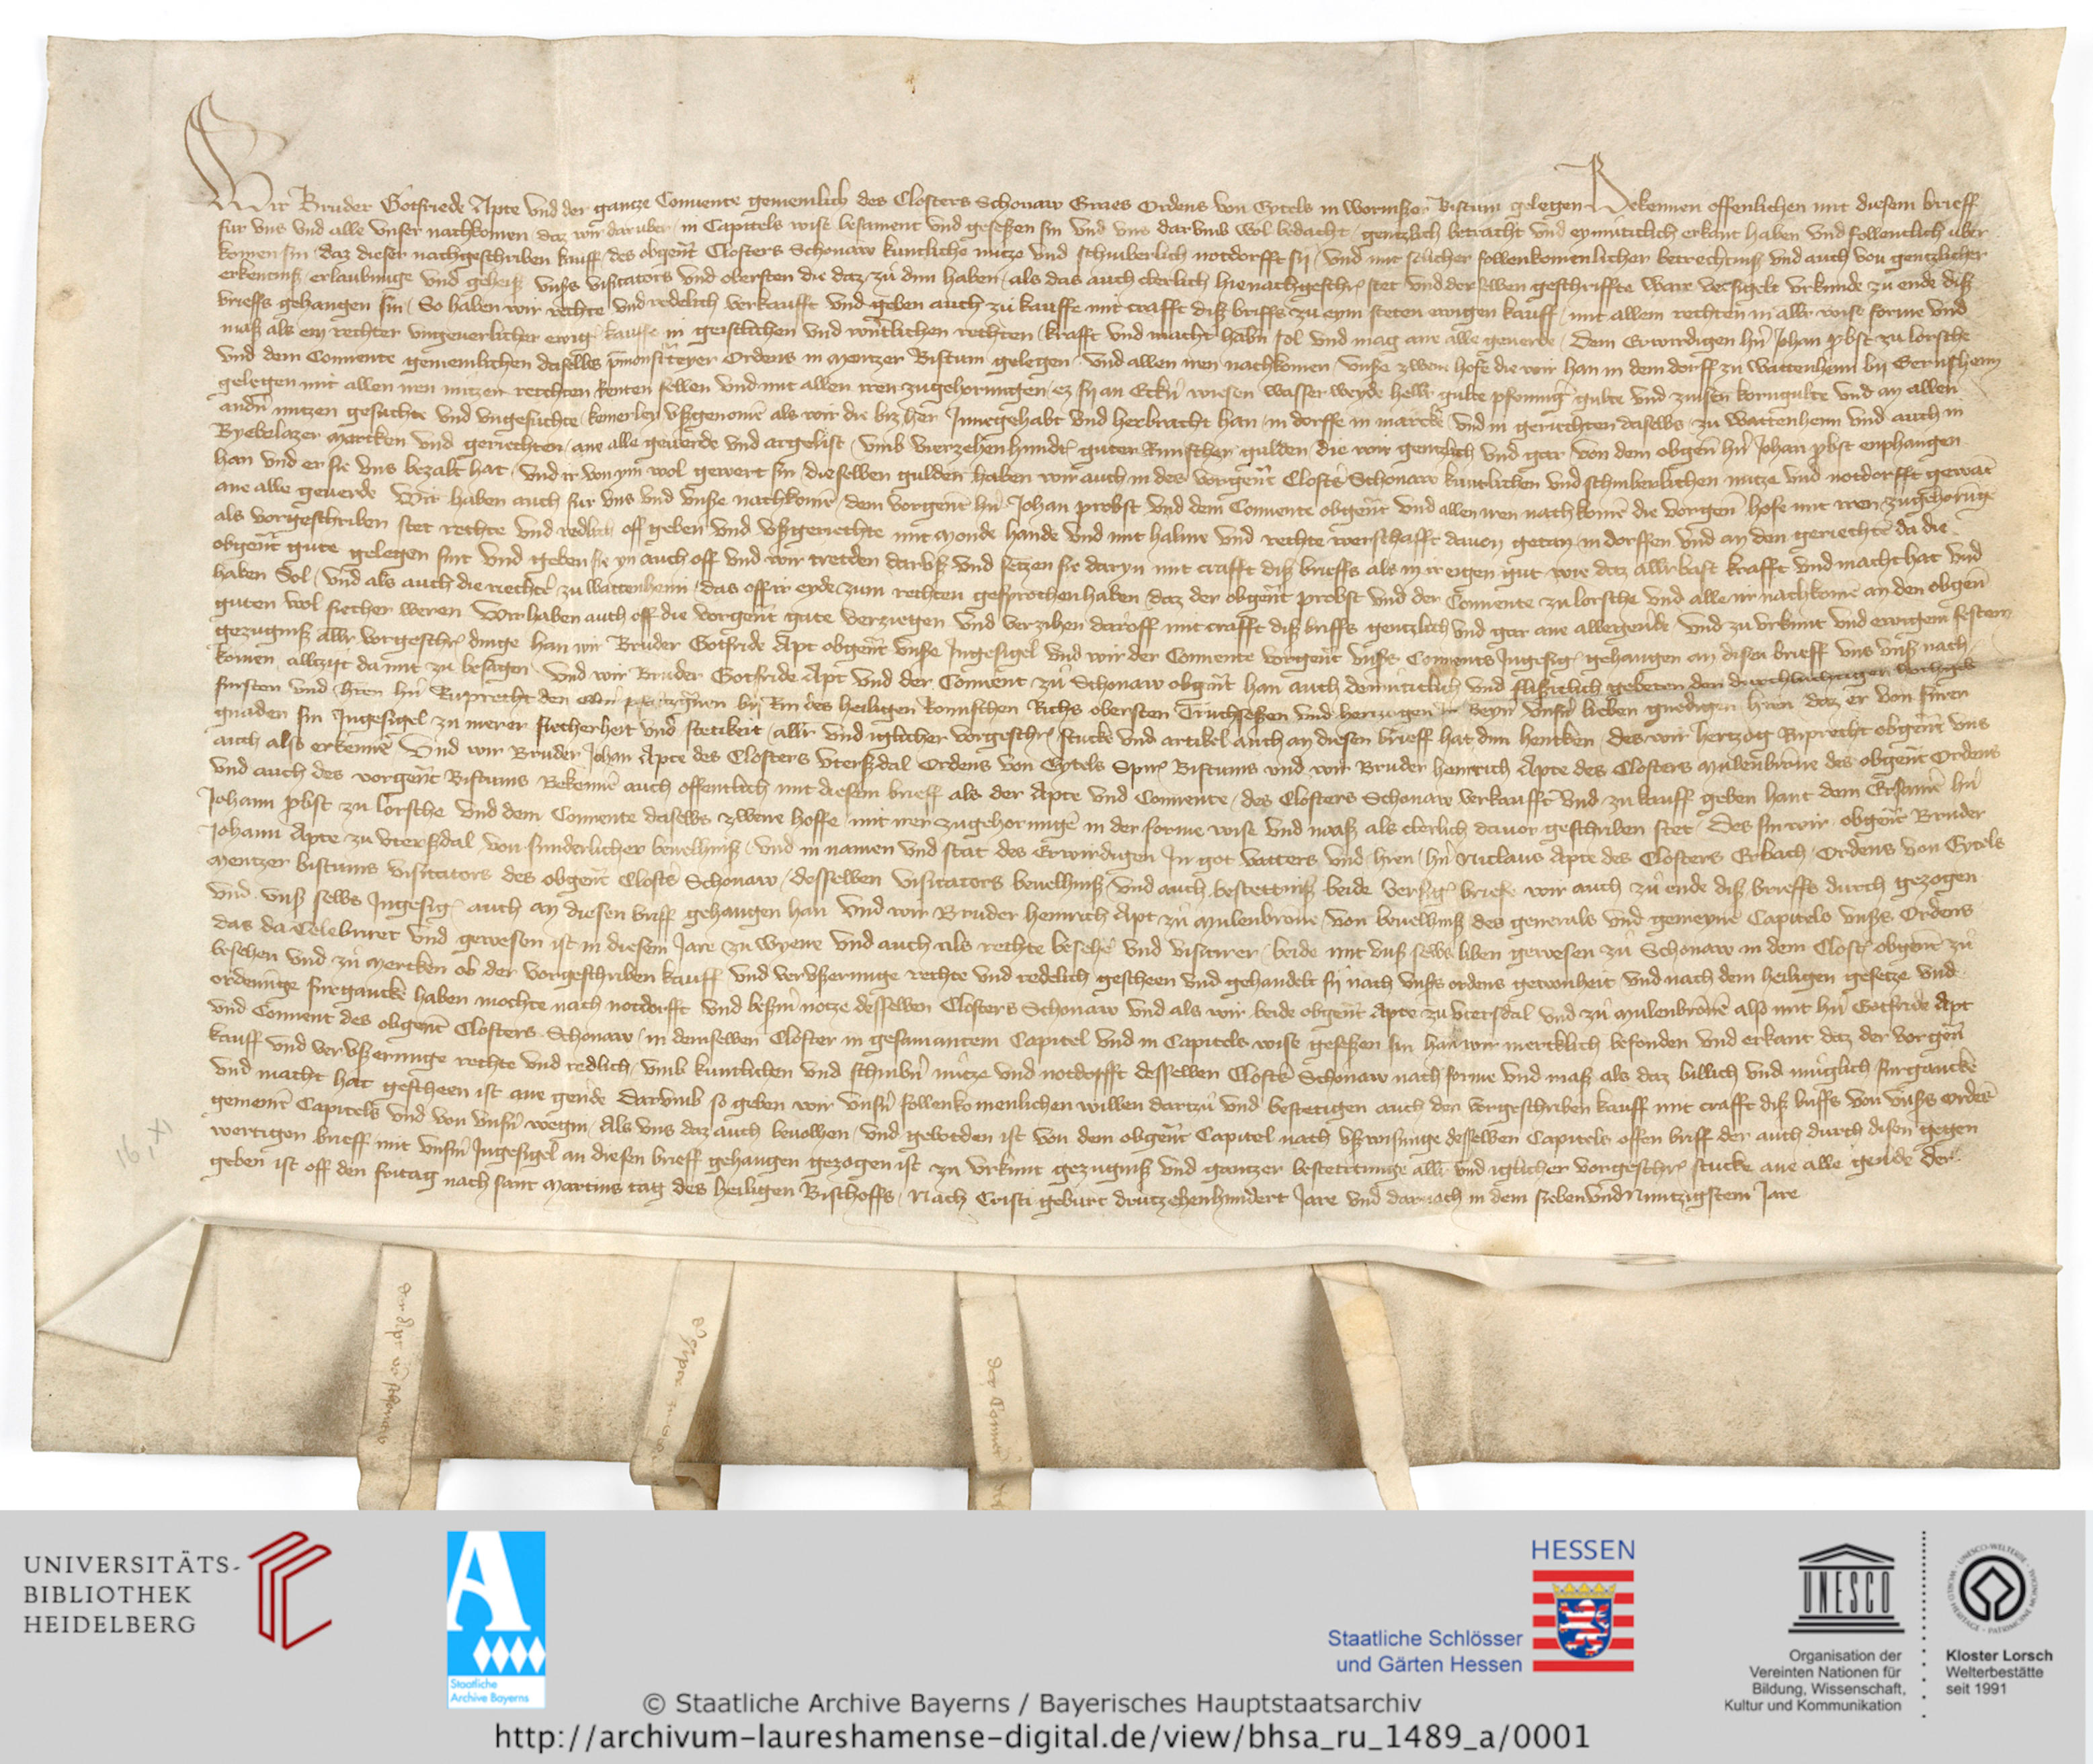 Wir Bruder Gotfriede Apte vnd der gantze Conuente gemeinlich des Closters Schonaw Graes Ordens von Cytels in Wormßer Bistum gelegen Bekennen offenlichen mit diesem brieff
fur vns vnd alle vnser nachkomen / daz wir daruber / in Capitels wise besament vnd geseßen sin vnd vns darvmb wol bedacht / gentzlich betracht vnd eymuticlich erkant haben vnd follentlich uber
komen sin / daz dieser nachgeschriben kauff / des obgen̄t Closters Schonaw kuntliche nutze vnd schinberlich notdorfft sy / vnd mit solicher follenkomenlicher betrechtniß vnd auch von gentzlicher
erkentniß / erlaubunge vnd geheiß vnßs visitators vnd obersten die daz zu dun haben / als das auch clerlich hienachgeschr stet vnd derselben geschriffte ware versigelt vrkunde zu ende diß
brieffs gehangen sin / So haben wir rechte vnd redelich verkaufft vnd geben auch zu kauffe mit crafft diß briffs zu eym steten ewigen kauff / mit allem rechten in allr wise forme vnd
maß als eyn rechter vngeuerlicher ewig kauffe in geistlichen vnd werntlichen rechten / krafft vnd macht habn sol vnd mag ane alle geuerde / Dem Erwirdigen hn Johan pbst zu lorsche
vnd dem Conuente gemeinlichen daselbs ordens in Mentzer Bistum gelegen / vnd allen iren nachkomen / vnße zwene hofe die wir han in dem dorff zu Wattenheim by Gernsheim
gelegen mit allen iren nutzen rechten Renten fellen vnd mit allen iren zugehorungen / ez sy an Eckn wiesen wasser weyde hellr gulte pfennig gulte vnd zinsen korngulte vnd an allen
andn nutzen gesuchte vnd vngesuchte / keinerley vßgenome als wir die biz her Innegehabt vnd herbracht han / in dorffe in marcke vnd in gerichten daselbs zu Wattenheim vnd auch in
Byebelazer marcken vnd geriechten / ane alle geuerde vnd argelist / vmb vierzehenhundert guter Rinscher gulden die wir gentzlich vnd gar von dem obgen hn Johan pbst enphangen
han vnd er sie vns bezalt hat / vnd ir von ym wol gewert sin / dieselben gulden haben wir auch in des vorgen̄t Closts Schonaw kuntlichen vnd schinberlichen nutze vnd notdorfft gewāt
ane alle geuerde Wir haben auch fur vns vnd vnße nachkomē / dem vorgent hn Johan probst vnd dem Conuente obgen̄t vnd allen iren nachkomē die vorgen hofe mit iren zugehorūge
als vorgeschriben stet rechte vnd redlich off geben vnd vßgeriechte mit monde hande vnd mit halme vnd rechte werschafft dauon getan / in dorffen vnd an den geriechte da die
obgen̄t gute gelegen sint vnd geben sie yn auch off vnd wir tretden darvß vnd setzen sie daryn mit crafft diß brieffs als in ir eigen gut wie daz allrbast krafft vnd macht hat vnd
haben Sol / vnd als auch die riechtr zu wattenheim / das off ir eyde zum rechten gesprochen haben / daz der obgen̄t probst vnd der Conuente zu lorsche vnd alle ir nachkomē an den obgen̄
guten wol siecher weren Wir haben auch off die vorgen̄t gute verziegen vnd verzihen daroff mit crafft diß briffs gentzlich vnd gar ane allegeuerde vnd zu vrkunt vnd ewigem festem
gezugniß allr vorgeschr dinge han wir Bruder Gotfride Apt obgen̄t vnße Ingesigel vnd wir der Conuente vorgen̄t vnßs Conuents Ingesig gehangen an disen brieff vns vnß nach
komen allezijt da mit zu besagen vnd wir Bruder Gotfride Apt vnd der Conuent zu Schonaw obgn̄t han auch demuticlich vnd flißielich gebeten den durchluchtigen hochgeb
fursten vnd hren hn Ruprecht den by Rin des heiligen Romschen Richs obersten Truchseßen vnd hertzogen in Beyrn vnsn lieben gnedigen hren daz er von sinen
gnaden sin Ingesigel zu merer siecherheit vnd stetikeit / allr vnd iglicher vorgeschr stucke vnd artikel auch an diesen brieff hat dun hencken / des wir hertzog Ruprecht obgen̄t vns
auch also erkennē Vnd wir Bruder Johan Apte des Closters vterßdal Ordens von Cytels Spirs Bistums vnd wir Bruder heinrich Apte des Closters Mulenbrōne des obgen̄t Ordens
vnd auch des vorgen̄t Bistums Bekennē auch offentlich mit diesem brieff als der Apte vnd Conuente / des Closters Schonaw verkaufft vnd zu kauff geben hant dem Ersamē hn
Johann pbst zu lorsche vnd dem Conuente daselbs zwene hoffe mit iren zugehorunge in der forme wise vnd maß als clerlich dauor geschriben stet / Des sin wir obgen̄t Bruder
Johann Apte zu vterßdal / von sunderlicher beuelhniß / vnd in namen vnd stat des Erwirdigen In got vatters vnd hren / hn Niclaus Apte des Closters Erbach / Ordens von Cytels
Mentzer bistums visitators des obgen̄t Closts Schonaw / desselben visitators beuelhniß / vnd auch bestettniß beide versig briefe wir auch zu ende diß brieffs durch gezogen
vnd vnß selbs Ingesig auch an diesen briff gehangen han vnd wir Bruder heinrich Apt zu Mulenbrōne / von beuelhniß des generals vnd gemeyne Capitels vnßs Ordens
das da Celebriret vnd gewesen ist in diesem Jare zu wyene vnd auch als rechte besehe vnd visitirer / beide mit vnß selbs liben gewesen zu Schonaw in dem Clost obgen̄t zu
besehen vnd zu mercken ob der vorgeschriben kauff vnd vervßerunge rechte vnd redelich gescheen vnd gehandelt sy nach vnßs ordens gewonheit vnd nach dem heiligen gesetze vnd
ordenūge furgancke haben mochte nach notdorfft vnd beßrn notze desselben Closters Schonaw vnd als wir beide obgen̄t Apte zu vterßdal vnd zu Mulenbrōne also mit hn Gotfride Apt
vnd Conuent des obgen̄t Closters Schonaw / in demselben Closter in gesamantem Capitel vnd in Capitels wise geseßen sin han wir mercklich befonden vnd erkant daz der vorgen̄
kauff vnd vervßerunge rechte vnd redlich / vmb kuntlichen vnd schinbn nutze vnd notdorfft desselben Closts Schonaw nach forme vnd maß als daz billich vnd muglich furgancke
vnd macht hat gescheen ist ane geude Darvmb so geben wir vnsn follenkomenlichen willen dartzu vnd bestetigen auch den vorgeschriben kauff mit crafft diß briffs von vnßs ordēs
gemeint Capitels vnd von vnsn wegen / Als vns daz auch beuolhen / vnd gebotden ist von dem obgen̄t Capitel nach vßwisunge desselben Capitels offen briff der auch durch disen gegen
wertigen brieff mit vnsm Ingesigel an diesen brieff gehangen gezogen ist zu vrkunt gezugniß vnd gantzer bestetunge allr vnd iglicher vorgeschr stucke ane alle geude Der
geben ist off den fritag nach sant Martins tag des heiligen Bischoffs / Nach Cristi geburt drutzehenhundert Jare vnd darnach in dem siebenvndnuntzigstem Jare
16, XI
der Apt von schonaw
der Conuent
UNIVERSITÄTS-
BIBLIOTHEK
HEIDELBERG
Staatliche
Archive Bayerns
HESSEN
Staatliche Schlösser
und Gärten Hessen
UNESCO
Organisation der
Vereinten Nationen für
Bildung, Wissenschaft,
Kultur und Kommunikation
UNESCO-WELTERBE
WORLD HERITAGE • PATRIMOINE MONDIAL
Kloster Lorsch
Welterbestätte
seit 1991
© Staatliche Archive Bayerns / Bayerisches Hauptstaatsarchiv
http://archivum-laureshamense-digital.de/view/bhsa_ru_1489_a/0001